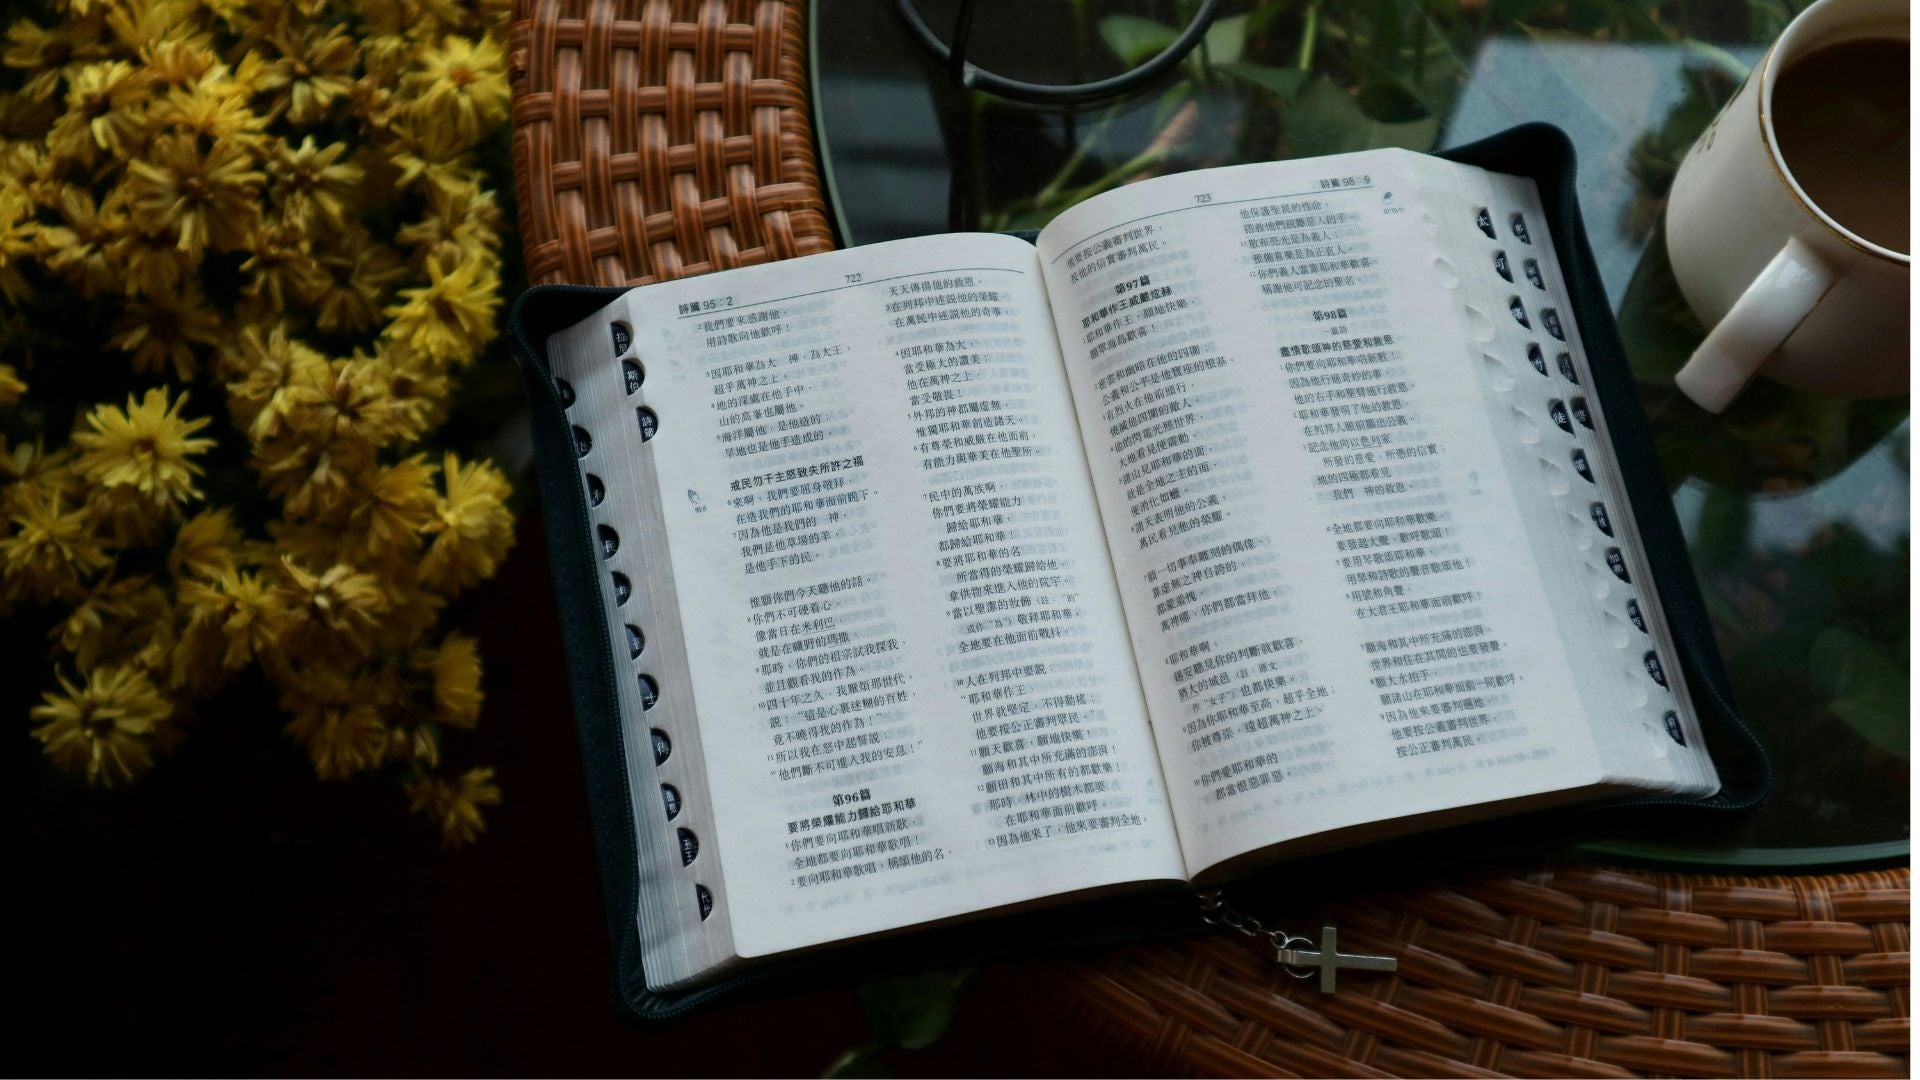 詩篇 95:2
722
2我們要來感謝他,
用詩歌向他歡呼!
3因耶和華為大 神,為大王,
超乎萬神之上。
4地的深處在他手中,
山的高峯也屬他。
5海洋屬他,是他造的;
旱地也是他手造成的。
戒民勿干主怒致失所許之福
6來啊,我們要屈身敬拜,
在造我們的耶和華面前跪下。
7因為他是我們的 神,
我們是他草場的羊,
是他手下的民。
惟願你們今天聽他的話。
8你們不可硬着心,
像當日在米利巴,
就是在曠野的瑪撒。
9那時,你們的祖宗試我探我,
並且觀看我的作為。
10四十年之久,我厭煩那世代,
說:“這是心裏迷糊的百姓,
竟不曉得我的作為!”
11所以我在怒中起誓說:
“他們斷不可進入我的安息!”
第96篇
要將榮耀能力歸給耶和華
1你們要向耶和華唱新歌,
全地都要向耶和華歌唱!
2要向耶和華歌唱,稱頌他的名,
天天傳揚他的救恩。
3在列邦中述說他的榮耀,
在萬民中述說他的奇事。
4因耶和華為大,
當受極大的讚美;
他在萬神之上,
當受敬畏!
5外邦的神都屬虛無,
惟獨耶和華創造諸天。
6有尊榮和威嚴在他面前,
有能力與華美在他聖所。
7民中的萬族啊,
你們要將榮耀能力
歸給耶和華,
都歸給耶和華!
8要將耶和華的名
所當得的榮耀歸給他,
拿供物來進入他的院宇。
9當以聖潔的妝飾(註:“的”
或作“為”)敬拜耶和華,
全地要在他面前戰抖。
10人在列邦中要說:
“耶和華作王,
世界就堅定,不得動搖;
他要按公正審判眾民。”
11願天歡喜,願地快樂!
願海和其中所充滿的澎湃!
12願田和其中所有的都歡樂!
那時,林中的樹木都要
在耶和華面前歡呼。
13因為他來了,他來要審判全地。
95:6
723
詩篇 98:9
他要按公義審判世界,
按他的信實審判萬民。
第97篇
耶和華作王威嚴炫赫
1耶和華作王,願地快樂,
願眾海島歡喜!
2密雲和幽暗在他的四圍,
公義和公平是他寶座的根基。
3有烈火在他前頭行,
燒滅他四圍的敵人。
4他的閃電光照世界,
大地看見便震動。
5諸山見耶和華的面,
就是全地之主的面,
便消化如蠟。
6諸天表明他的公義,
萬民看見他的榮耀。
7願一切事奉雕刻的偶像、
靠虛無之神自誇的,
都蒙羞愧。
萬神哪,你們都當拜他。
8耶和華啊,
錫安聽見你的判斷就歡喜,
猶大的城邑(註:原文
作“女子”)也都快樂。
9因為你耶和華至高,超乎全地;
你被尊崇,遠超萬神之上。
10你們愛耶和華的,
都當恨惡罪惡。
他保護聖民的性命,
搭救他們脫離惡人的手。
11散布亮光是為義人;
預備喜樂是為正直人。
12你們義人當靠耶和華歡喜,
稱謝他可記念的聖名。
第98篇
一篇詩
盡情歌頌神的慈愛和救恩
1你們要向耶和華唱新歌!
因為他行過奇妙的事,
他的右手和聖臂施行救恩。
2耶和華發明了他的救恩,
在列邦人眼前顯出公義。
3記念他向以色列家
所發的慈愛,所憑的信實;
地的四極都看見
我們 神的救恩。
4全地都要向耶和華歡樂,
要發起大聲,歡呼歌頌!
5要用琴歌頌耶和華,
用琴和詩歌的聲音歌頌他!
6用號和角聲,
在大君王耶和華面前歡呼!
7願海和其中所充滿的澎湃,
世界和住在其間的也要發聲。
8願大水拍手,
願諸山在耶和華面前一同歡呼。
9因為他來要審判遍地,
他要按公義審判世界,
按公正審判萬民。
97:10-11
斯
詩篇
出
利
民
士
得
太
可
路
約
徒
羅
加